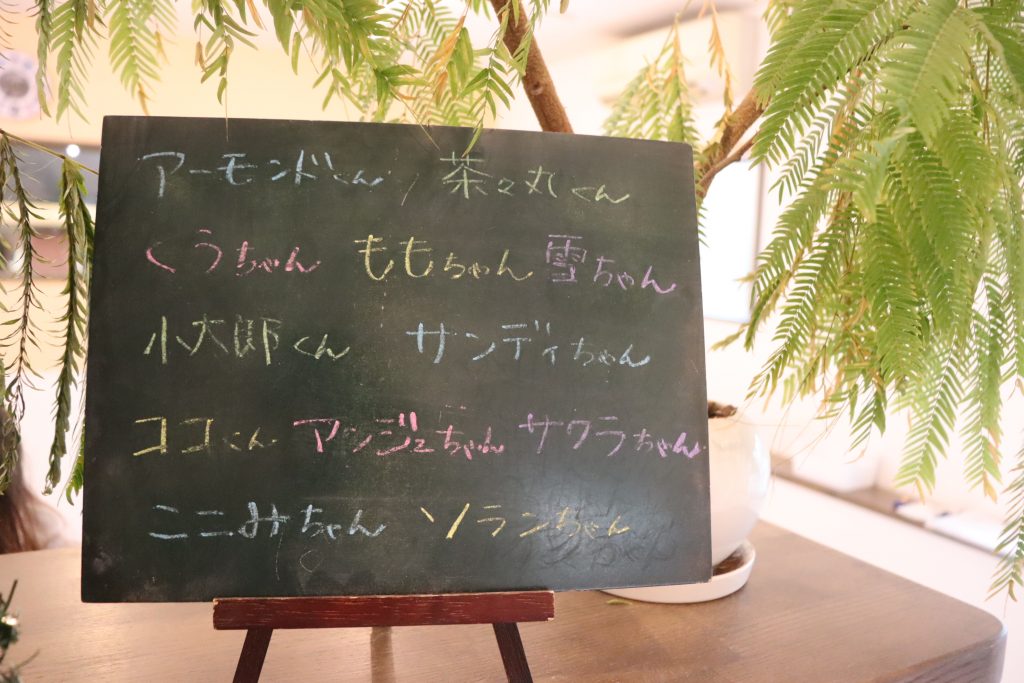 アーモンドくん 茶々丸くん
くうちゃん ももちゃん 雪ちゃん
小太郎くん サンディちゃん
ココくん アンジュちゃん サクラちゃん
ここみちゃん ソランちゃん